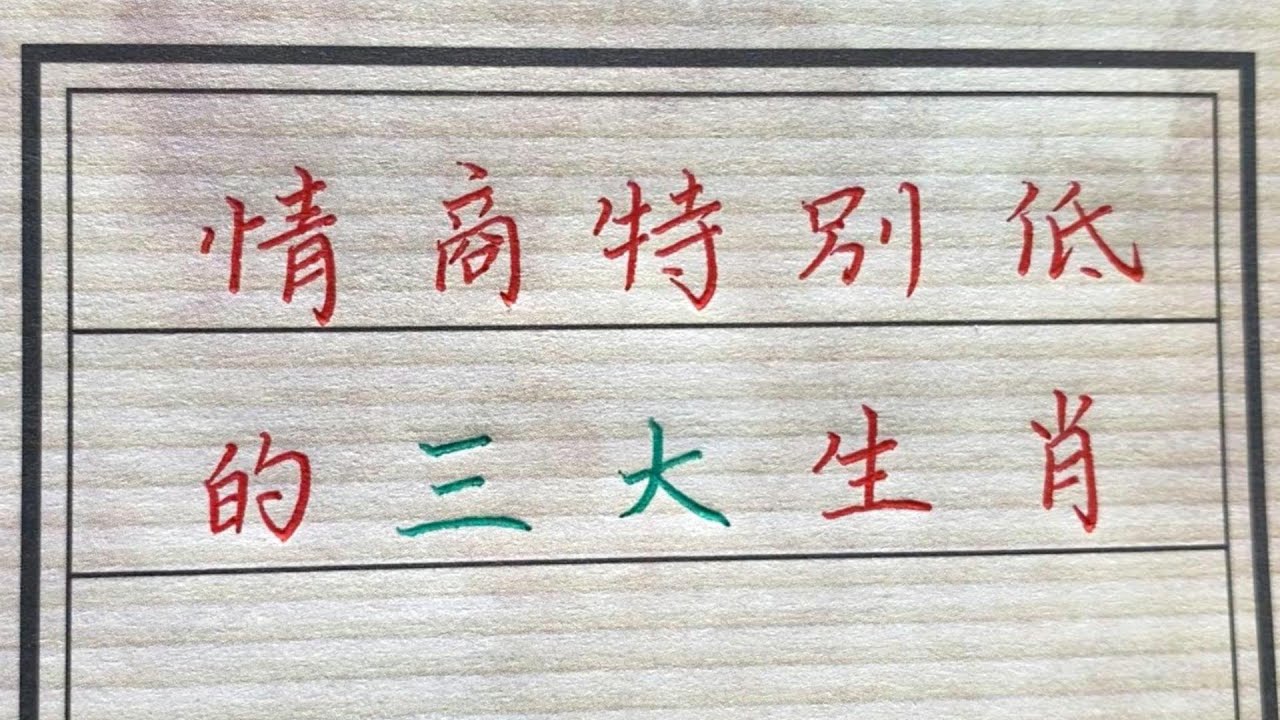 情商特别低
的三大生肖